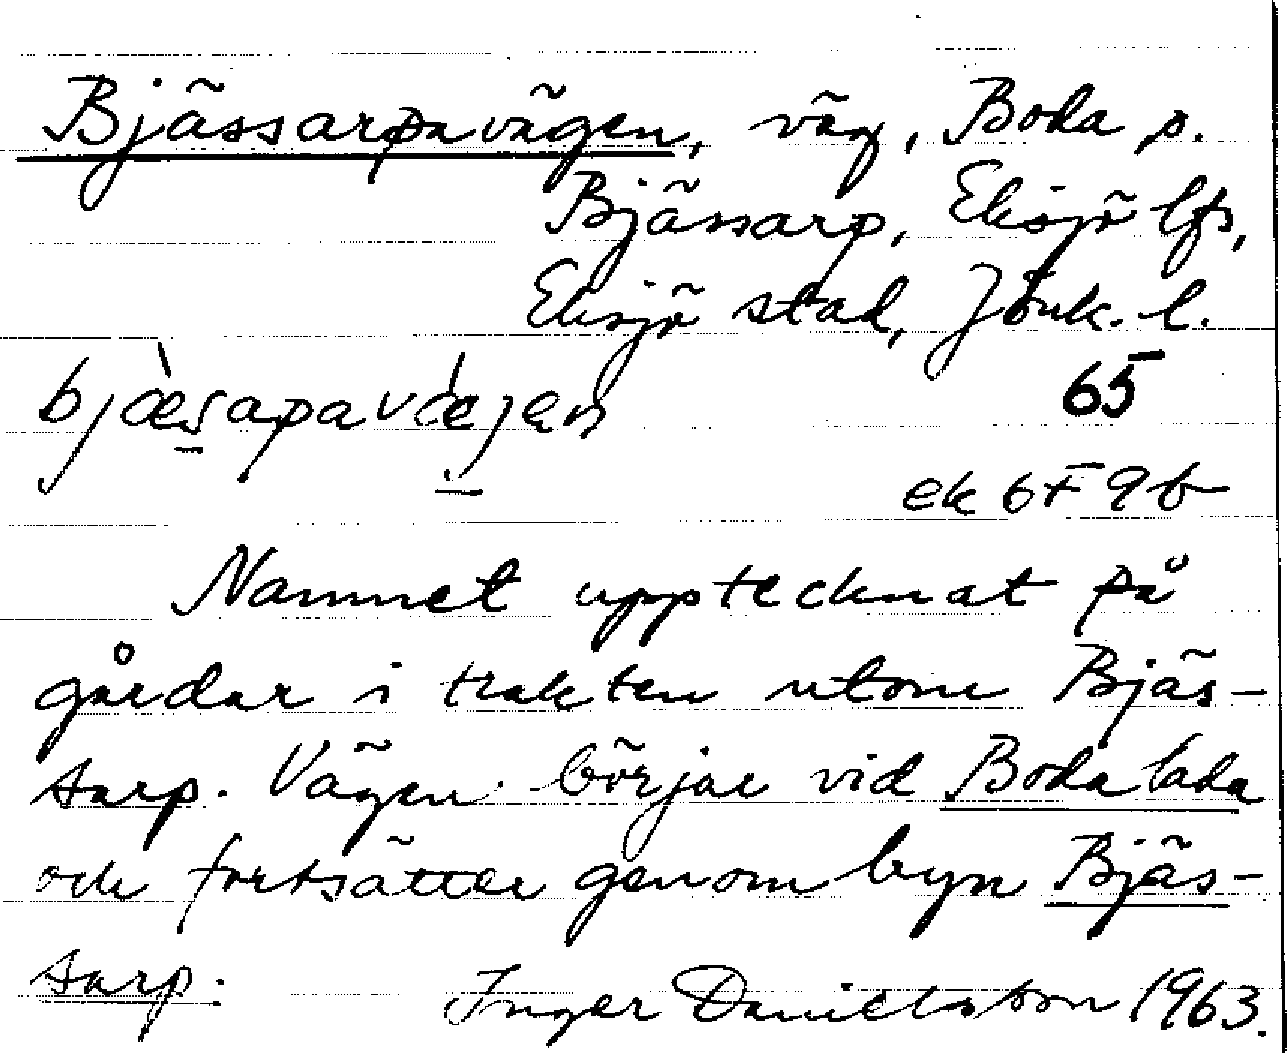 Bjässarpavägen, väg, Boda p.
Bjässarp, Eksjö lfs,
Eksjö stad, Jönk. l.
65
ek 6F 9b
Namnet upptecknat på
gårdar i trakten utom Bjäs-
sarp. Vägen börjar vid Boda lada
och fortsätter genom byn Bjäs-
sarp.
Inger Danielsson 1963.